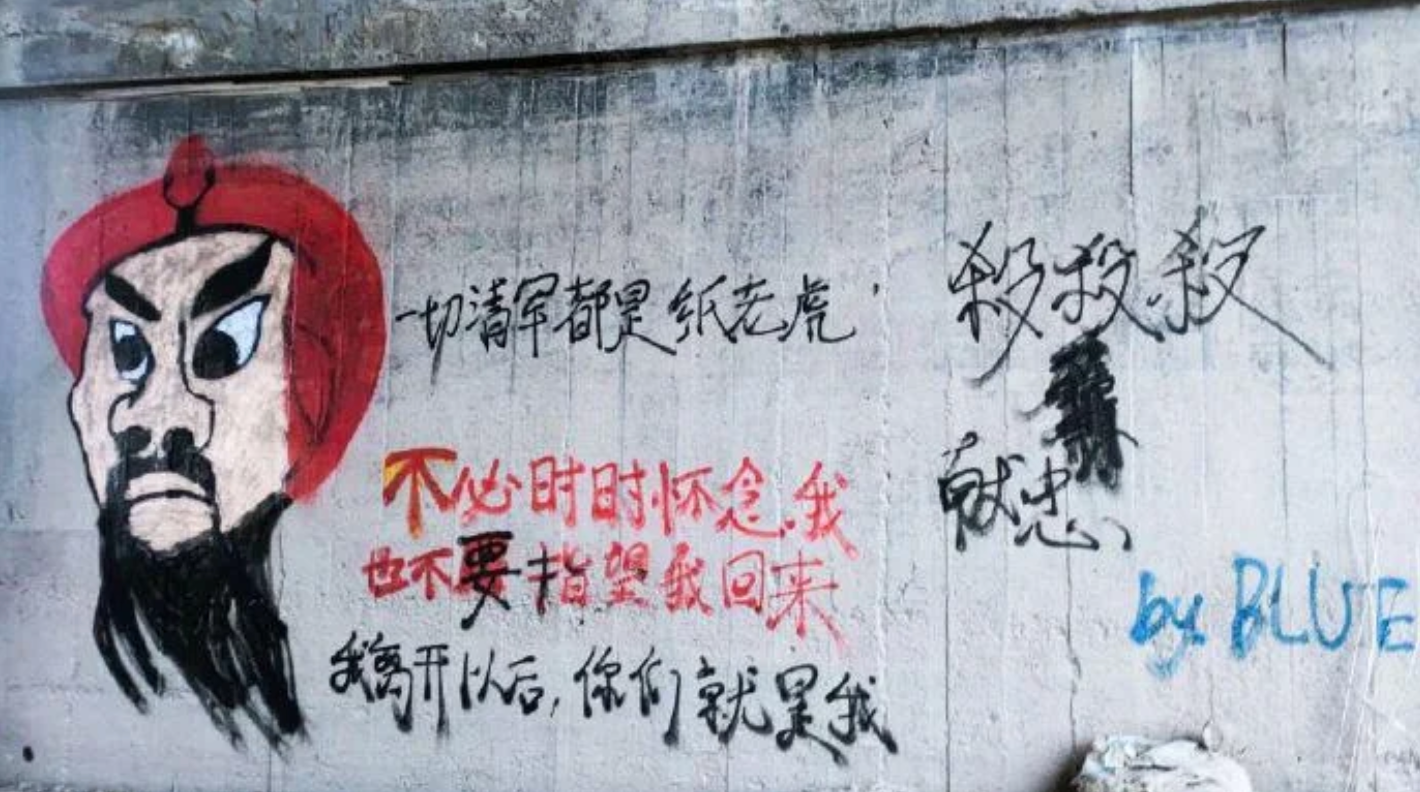 一切清军都是纸老虎，
不必时时怀念我
也不要指望我回来
我离开以后,你们就是我
殺殺殺
献忠
by BLUE